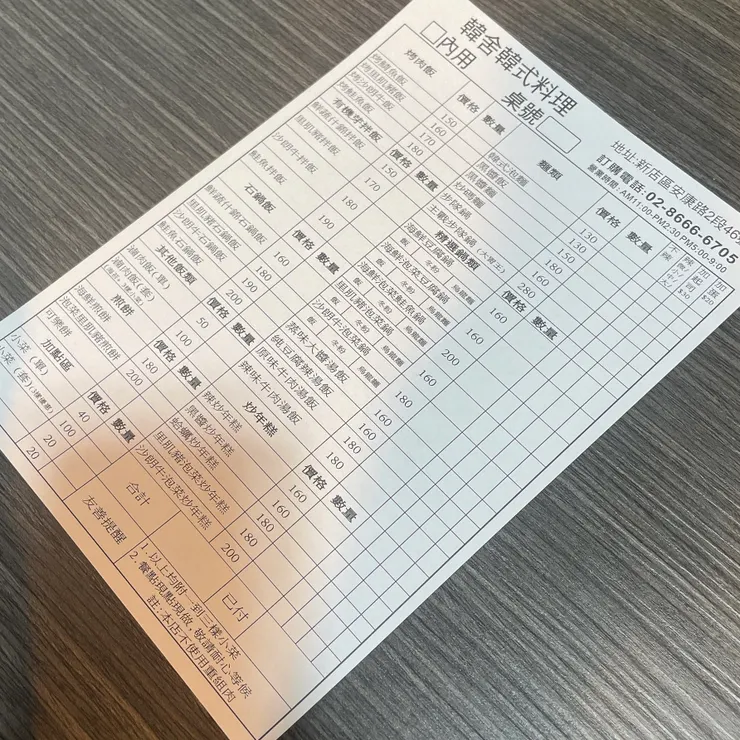 韓舍韓式料理
□內用
桌號
地址:新店區安康路2段46號
訂購電話:02-8666-6705
營業時間:AM11:00-PM2:30 PM5:00-9:00
烤肉飯 價格 數量
烤鯖魚飯 150
烤里肌豬飯 160
烤沙朗牛飯 170
烤鮭魚飯 180
有機芽拌飯 價格 數量
鮮蔬什錦拌飯 150
里肌豬拌飯 170
沙朗牛拌飯 180
鮭魚拌飯 190
石鍋飯 價格 數量
鮮蔬什錦石鍋飯 160
里肌豬石鍋飯 180
沙朗牛石鍋飯 190
鮭魚石鍋飯 200
其他飯類 價格 數量
滷肉飯(單) 50
滷肉飯(套) 100
煎餅 價格 數量
海鮮煎餅 180
泡菜里肌豬煎餅 200
可樂餅 40
加點區 價格 數量
小菜(單) 20
小菜(套) 20
麵類 價格 數量
韓式泡麵 130
黑醬飯 130
黑醬麵 150
炒碼麵 180
步隊鍋 160
主戰步隊鍋(大胃王) 280
精選鍋類
海鮮豆腐鍋 冬粉 烏龍麵 160
海鮮泡菜豆腐鍋 冬粉 烏龍麵 160
海鮮泡菜鮭魚鍋 冬粉 烏龍麵 200
里肌豬泡菜鍋 冬粉 烏龍麵 160
沙朗牛泡菜鍋 冬粉 烏龍麵 180
蒸味大醬湯飯 160
純豆腐辣湯飯 160
原味牛肉湯飯 180
辣味牛肉湯飯 180
炒年糕 價格 數量
辣炒年糕 160
黑醬炒年糕 160
蛤蠣炒年糕 180
里肌豬泡菜炒年糕 180
沙朗牛泡菜炒年糕 200
合計
已付
友善提醒
1. 以上均附一到三樣小菜
2. 餐點現點現做,敬請耐心等候
註:本店不使用重組肉